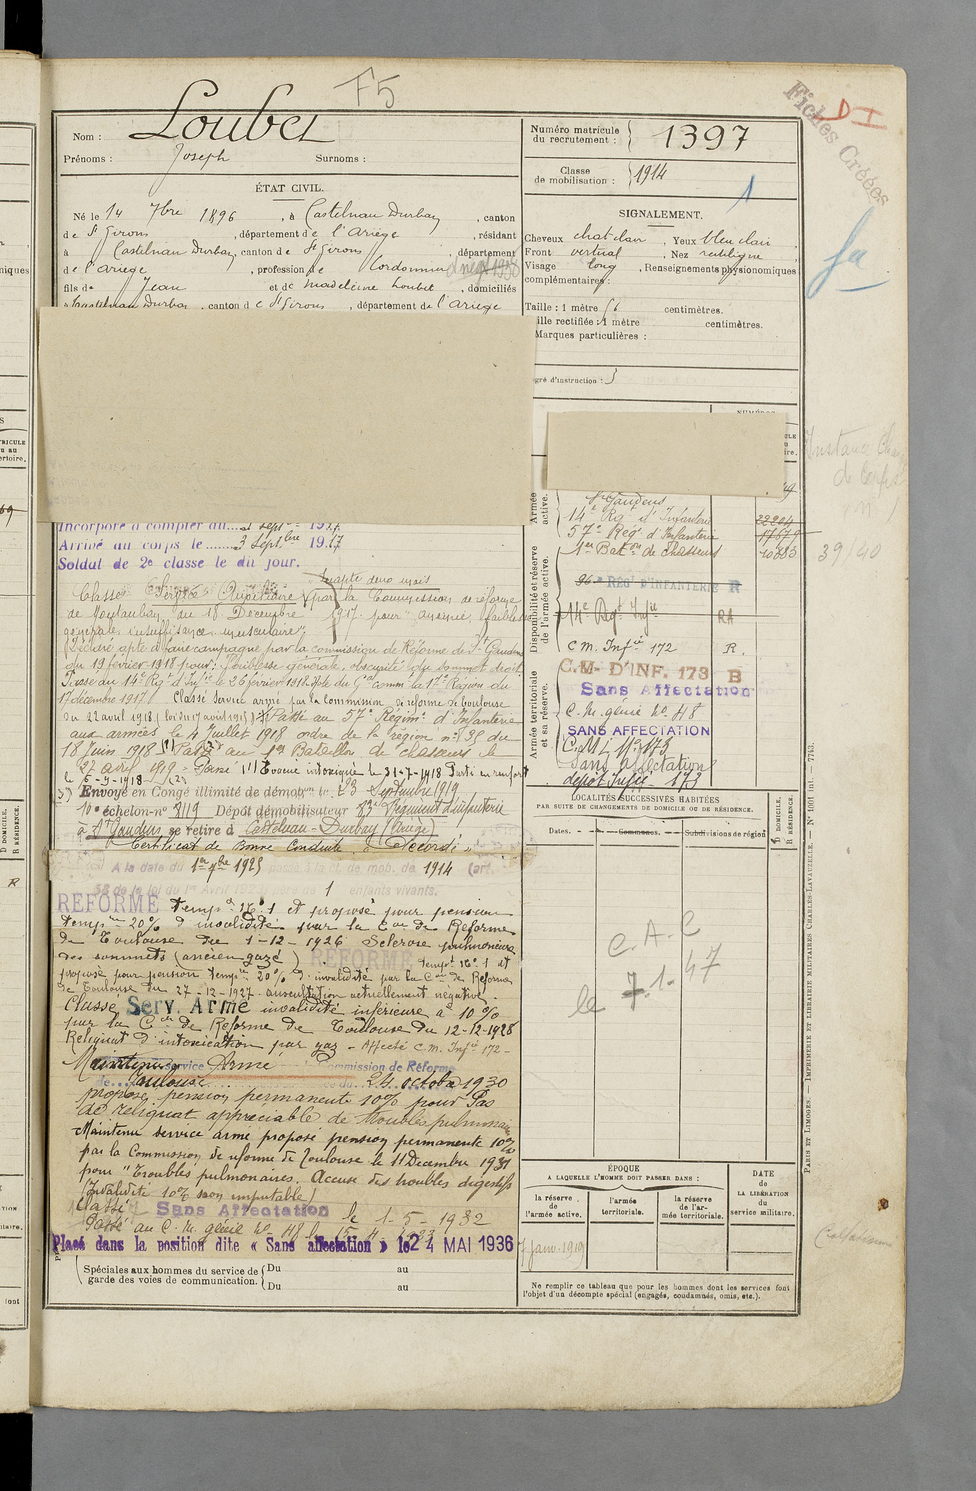 F5
Fiches Créées
D I
Nom : Loubet
Prénoms : Joseph Surnoms :
Numéro matricule du recrutement : 1397
Classe de mobilisation : 1914
1
ÉTAT CIVIL.
Né le 14 7bre 1896, à Castelnau Durban, canton
de St Girons, département de l'Ariège, résidant
à Castelnau Durban, canton de St Girons, département
de l'Ariège, profession de Cordonnier
fils de Jean et de Madeleine Loubet, domiciliés
à Castelnau Durban, canton de St Girons, département de l'Ariège
SIGNALEMENT.
Cheveux chat clair, Yeux bleu clair,
Front vertical, Nez rectiligne,
Visage long, Renseignements physionomiques
complémentaires :
Taille : 1 mètre 56 centimètres.
ille rectifiée : 1 mètre centimètres.
Marques particulières :
egré d'instruction :
Incorporé à compter du... 3 sept.bre 1917.
Arrivé au corps le........3 Sept.bre 1917
Soldat de 2e classe le dit jour.
Inapte deux mois
Classé Service Auxiliaire par la Commission de réforme
de Montauban du 18 Décembre 1917 pour "anémie, faiblesse
générale, insuffisance musculaire"
Déclaré apte à faire campagne par la commission de Réforme de St Gaudens
du 19 février 1918 pour : Faiblesse générale, obscurité du sommet droit
Passé au 14e Rég. d'Inf.ie le 26 février 1918. Ordre du Gal comm.t la 17e Région du
17 décembre 1917 Classé Service armé par la Commission de réforme de Toulouse
du 22 avril 1918 (loi du 17 avril 1915) Passé au 57e Régim.t d'Infanterie
aux armées le 4 Juillet 1918 ordre de la région n° 35 du
18 Juin 1918 Passé au 1er Bataillon de chasseurs le
27 avril 1919 - Gazé (1) Evacué intoxiqué le 31-7-1918 Parti en renfort
le 5-9-1918
Envoyé en Congé illimité de démob.on le 23 Septembre 1919
10e échelon-n° 8119 Dépôt démobilisateur 83e Régiment d'infanterie
à St Gaudens se retire à Castelnau-Durban (Ariège)
"Certificat de Bonne Conduite" "Accordé"
A la date du 1er 7bre 1925 passé à la cl. de mob. de 1914 (art.
58 de la loi du 1er Avril 1923) père de 1 enfants vivants.
RÉFORMÉ temp.re n° 1 et proposé pour pension
temp.re 20% d'invalidité par la Con de Réforme
de Toulouse du 1-12-1926 Sclérose pulmonaire
des sommets (ancien gazé) RÉFORMÉ temp.re n° 1 et
proposé pour pension temp.re 20% d'invalidité par la Con de Réforme
de Toulouse du 27-12-1927. auscultation actuellement négative.
Classé Serv. Armé invalidité inférieure à 10%
par la Con de Réforme de Toulouse du 12-12-1928
Reliquat d'intoxication par gaz - Affecté C.M. Inf.ie 172 -
Maintenu service Armé Commission de Réforme
de.... Toulouse du...24 octobre 1930
propose pension permanente 10% pour Pas
de reliquat appréciable de troubles pulmonaires
Maintenu service armé proposé pension permanente 10%
par la Commission de réforme de Toulouse le 11 Décembre 1931
pour "Troubles pulmonaires. Accuse des troubles digestifs
(Invalidité 10% non imputable)
Classé Sans Affectation le 1-5-1932
Passé au C.M. génie n° 48 le 15-4-
Placé dans la position dite « Sans affectation » le 24 MAI 1936
Spéciales aux hommes du service de garde des voies de communication. Du au
Du au
NUMÉROS
Armée active.
St Gaudens
14e Rég.t d'Infanterie 22204
57e Rég.t d'Infanterie 17679
1er Bat.on de Chasseurs 10883
Disponibilité et réserve de l'armée active.
96e RÉGt D'INFANTERIE R
14e Reg.t Inf.ie RA
C.M. Inf.ie 172 R.
Armée territoriale et sa réserve.
C.M. D'INF. 173 B
Sans Affectation
C.M. génie No 48
SANS AFFECTATION
C.M.I. No 173
Sans affectation
dépôt Inf.ie 173
Instance
39/40
LOCALITÉS SUCCESSIVES HABITÉES
PAR SUITE DE CHANGEMENTS DE DOMICILE OU DE RÉSIDENCE.
Dates. Communes. Subdivisions de région
D DOMICILE.
R RÉSIDENCE.
C.A.C
le 7.1.47
ÉPOQUE
A LAQUELLE L'HOMME DOIT PASSER DANS :
la réserve de l'armée active.
l'armée territoriale.
la réserve de l'armée territoriale.
DATE de LA LIBÉRATION du service militaire.
Janv. 1919
Ne remplir ce tableau que pour les hommes dont les services font
l'objet d'un décompte spécial (engagés, condamnés, omis, etc.).
PARIS ET LIMOGES. — IMPRIMERIE ET LIBRAIRIE MILITAIRES CHARLES-LAVAUZELLE. — N° 1001 int. — 7743.